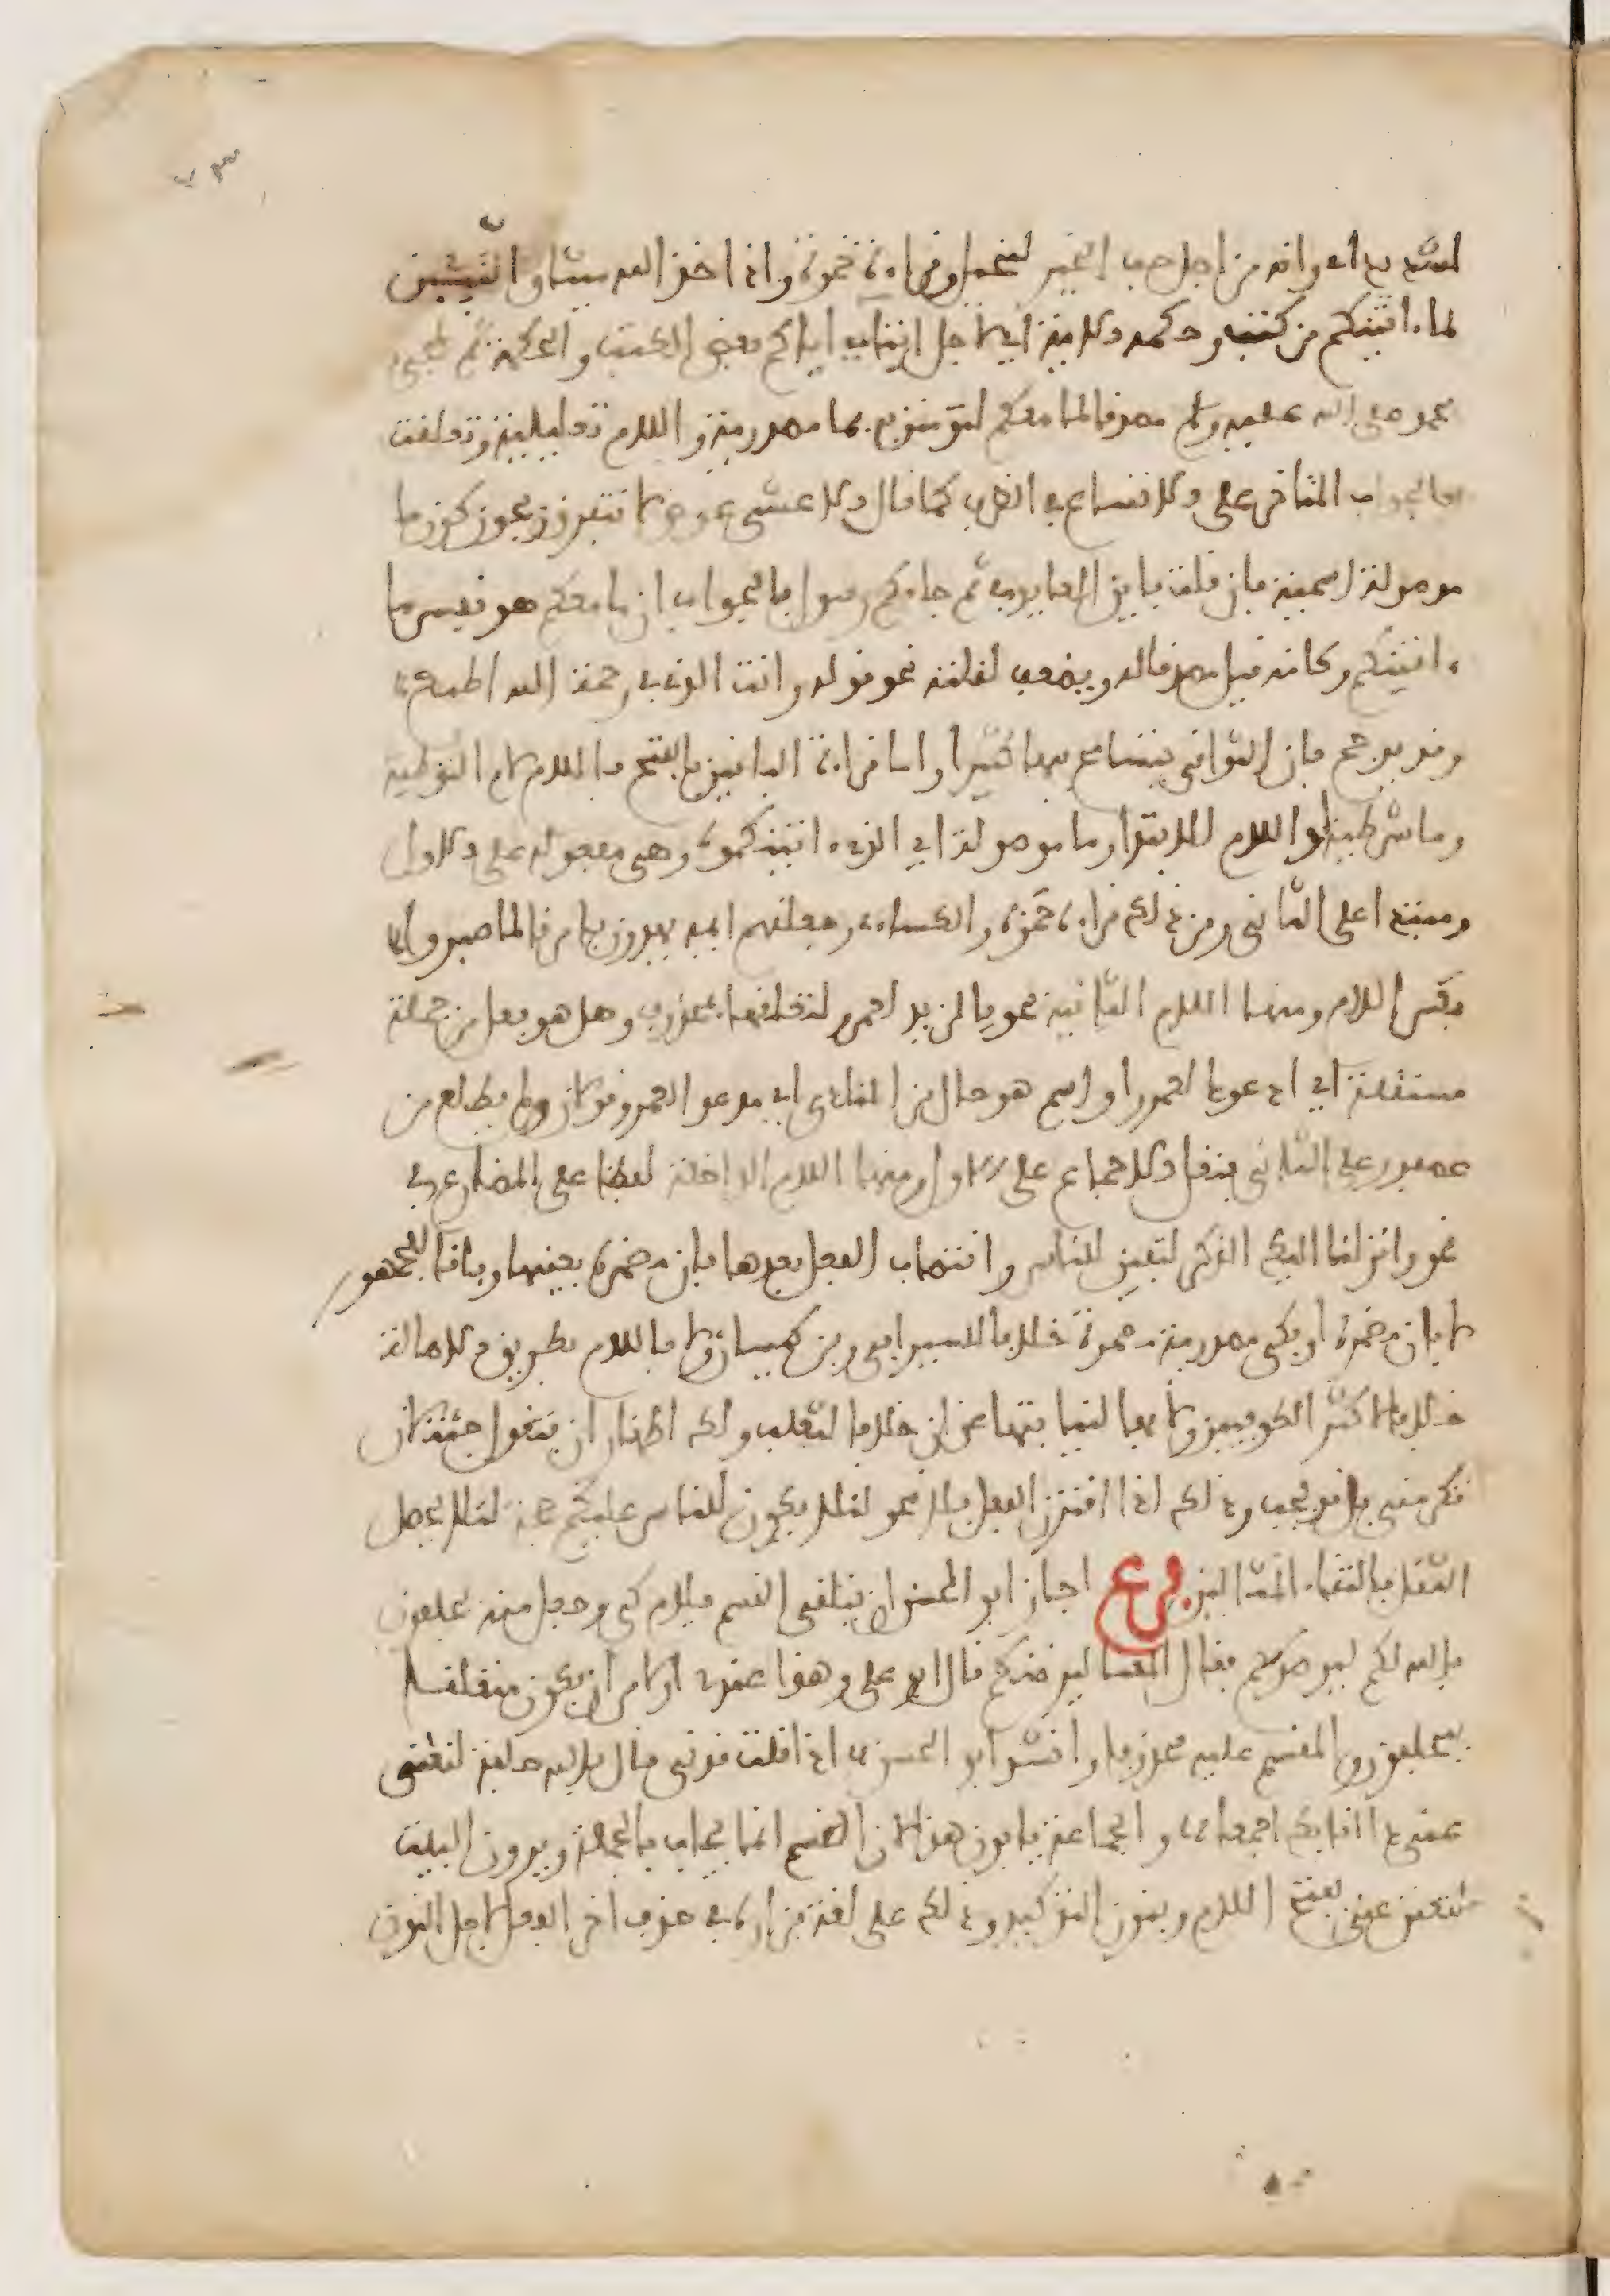 لشديد اي وانه من اجل حب الخير لبخيل وقراءة حمزة واذ اخذ الله ميثاق النبيين
لما ءاتيتكم من كتب وحكمة الاية اي لاجل ايتائي اياكم بعض الكتب والحكمة ثم لمجيء
محمد صلى الله عليه وسلم مصدقا لما معكم لتومنن به فما مصدرية واللام تعليلية وتعلقت
بالجواب المتاخر على الاتساع في الظرف كما قال الاعشى عوض لا نتفرق ويجوز كون ما
موصولة اسمية فان قلت فاين العايد في ثم جاءكم رسول فالجواب ان ما معكم هو نفس ما
ءاتيتكم وكانه قيل مصدق له ويضعف لقلته نحو قوله وانت الذي في رحمة الله اطمع
وقد يرجح بان الثواني يتسامح فيها كثيرا واما قراءة الباقين بالفتح فاللام لام التوطية
وما شرطية او اللام للابتدا وما موصولة اي الذي ءاتيتكموه وهي مفعولة على الاول
ومبتدا على الثاني ومن ذلك قراءة حمزة والكساءي وجعلنهم ايمة يهدون بامرنا لما صبروا
بكسر اللام ومنها اللام الثانية نحو يا لزيد لعمرو لتعلقها بمحذوف وهل هو فعل من جملة
مستقلة اي ادعوك لعمرو او اسم هو حال من المنادى اي مدعوا لعمرو قولان ولم يطلع بن
عصفور على الثاني فنقل الاجماع على الاول ومنها اللام الداخلة لفظا على المضارع في
نحو وانزلنا اليك الذكر لتبين للناس وانتصاب الفعل بعدها بان مضمرة بعينها وفاقا للجمهور
لا بان مضمرة او بكي مصدرية مضمرة خلافا للسيرافي وبن كيسان ولا باللام بطريق الاصالة
خلافا لاكثر الكوفيين ولا بها لنيابتها عن ان خلافا لثعلب ولك اظهار ان فتقول جئتك لان
تكرمني بل قد يجب وذلك اذا اقترن الفعل بلا نحو لئلا يكون للناس عليكم حجة لئلا يحصل
الثقل بالتقاء المثلين فرع اجاز ابو الحسن ان يتلقى القسم بلام كي وجعل منه يحلفون
بالله لكم ليرضوكم فقال المعنى ليرضنكم قال ابو علي وهذا عندي اولى من ان يكون متعلقا
بيحلفون والمقسم عليه محذوفا وانشد ابو الحسن اذا قلت قدني قال بالله حلفة لتغني
عني ذا انايك اجمعا والجماعة يابون هذا لان القسم انما يجاب بالجملة ويروون البيت
لتغنن عني بفتح اللام وبنون التوكيد وذلك على لغة فزارة في حذف اخر الفعل لاجل النون